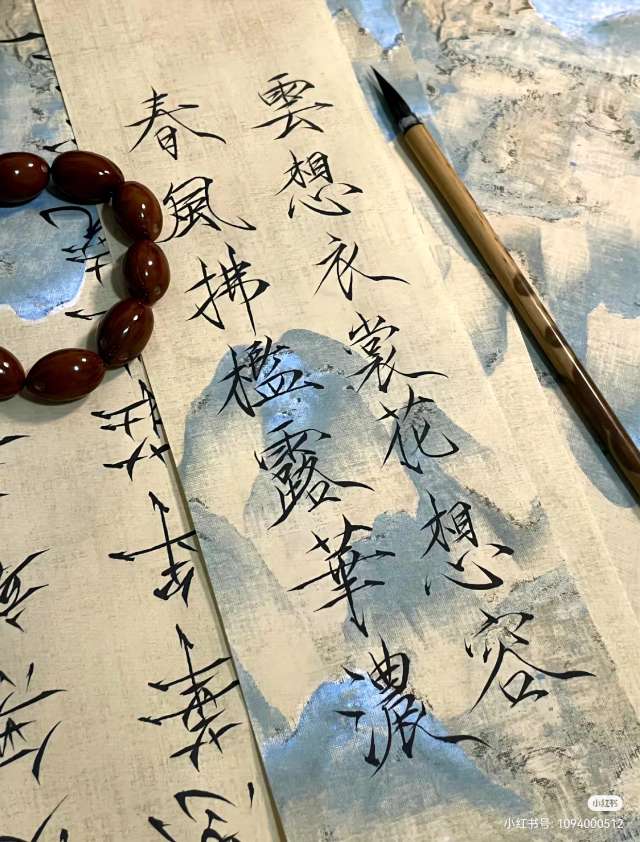 雲想衣裳花想容
春風拂檻露華濃
小红书
小红书号: 1094000512